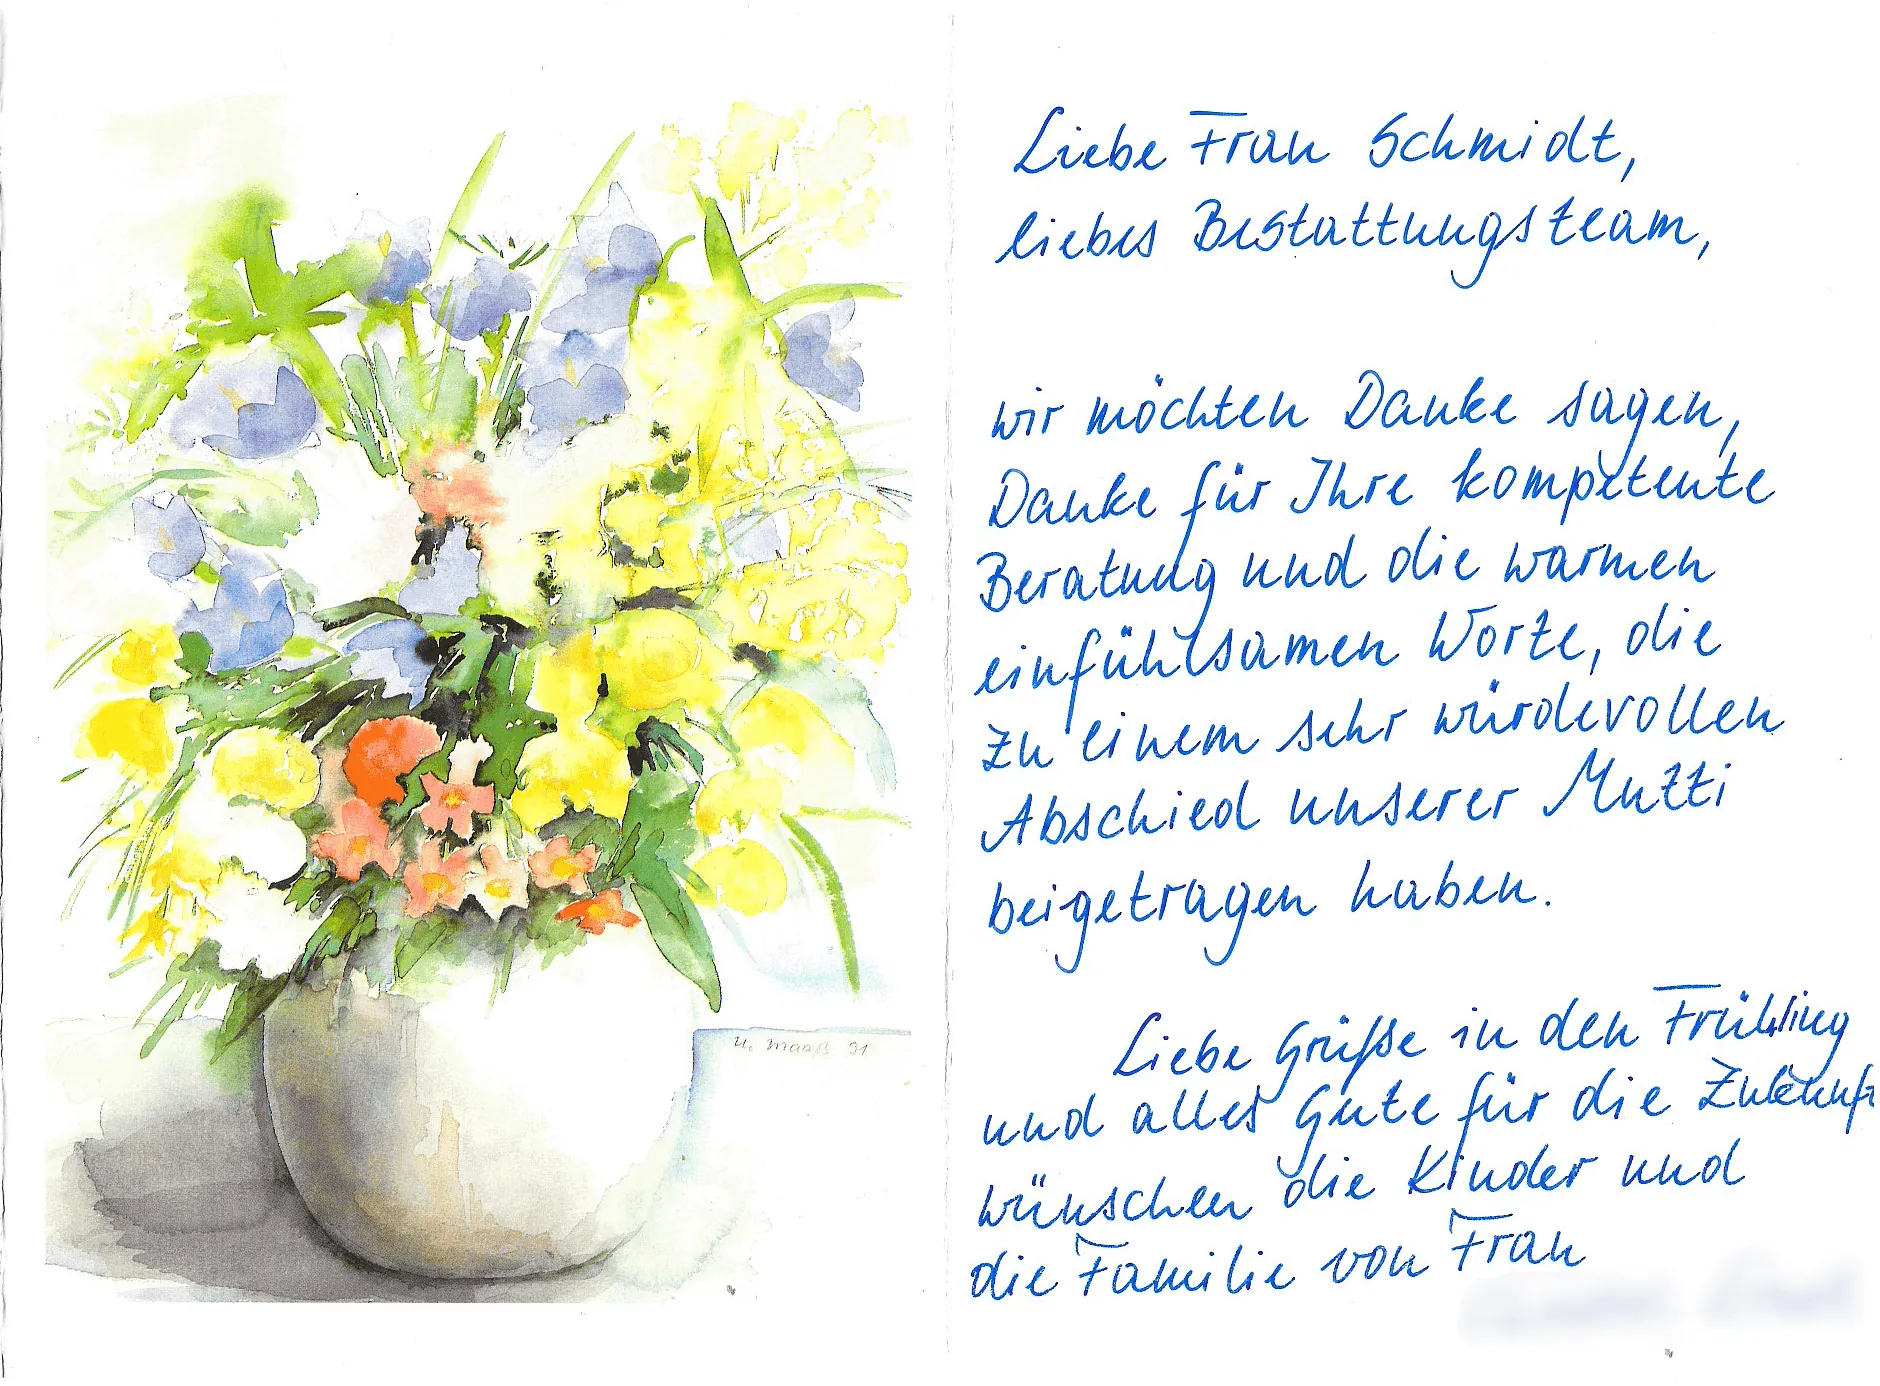 U. Maaß 91
Liebe Frau Schmidt,
liebes Bestattungsteam,
wir möchten Danke sagen,
Danke für Ihre kompetente
Beratung und die warmen
einfühlsamen Worte, die
zu einem sehr würdevollen
Abschied unserer Mutti
beigetragen haben.
Liebe Grüße in den Frühling
und alles Gute für die Zukunft
wünschen die Kinder und
die Familie von Frau